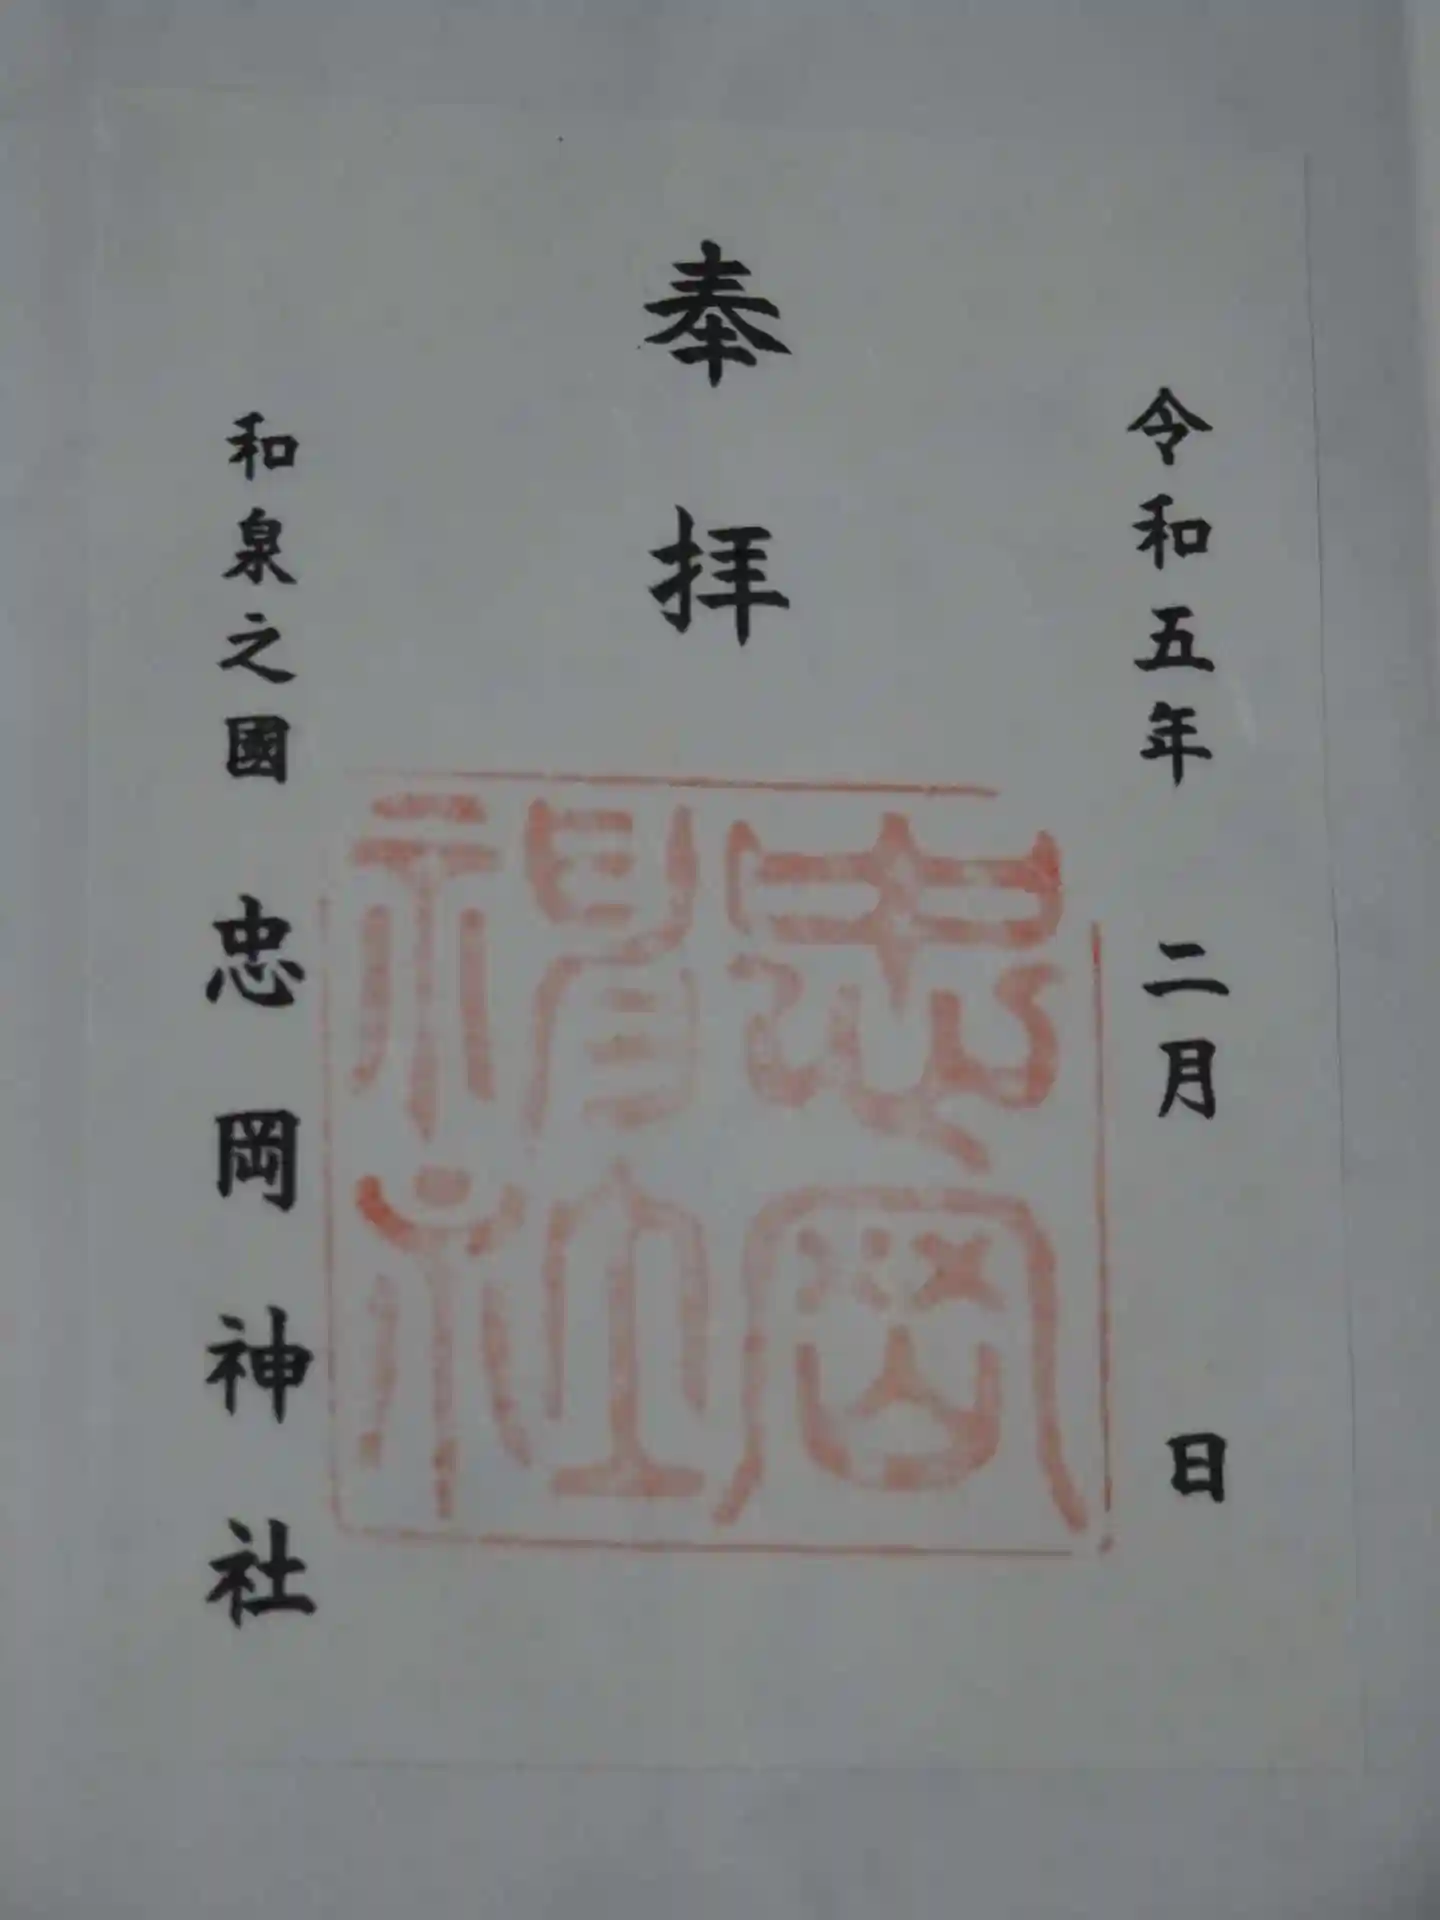 令和五年 二月 日
奉拝
忠岡神社
和泉之國 忠岡神社